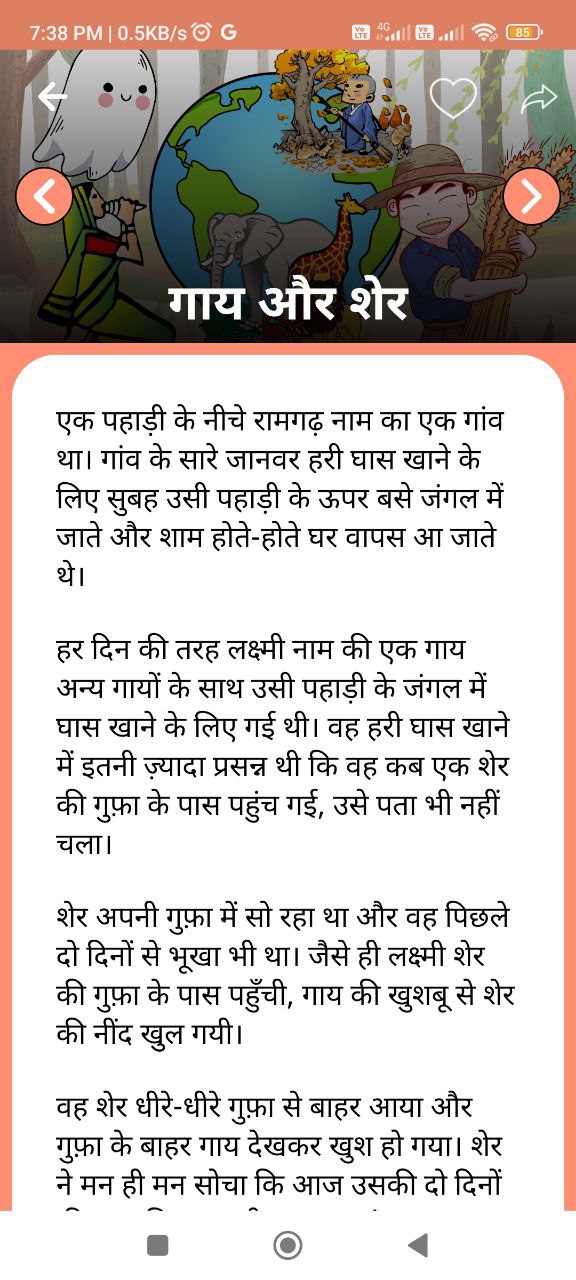 7:38 PM | 0.5KB/s G Vo LTE 4G Vo LTE 85
गाय और शेर
एक पहाड़ी के नीचे रामगढ़ नाम का एक गांव
था। गांव के सारे जानवर हरी घास खाने के
लिए सुबह उसी पहाड़ी के ऊपर बसे जंगल में
जाते और शाम होते-होते घर वापस आ जाते
थे।
हर दिन की तरह लक्ष्मी नाम की एक गाय
अन्य गायों के साथ उसी पहाड़ी के जंगल में
घास खाने के लिए गई थी। वह हरी घास खाने
में इतनी ज़्यादा प्रसन्न थी कि वह कब एक शेर
की गुफ़ा के पास पहुंच गई, उसे पता भी नहीं
चला।
शेर अपनी गुफ़ा में सो रहा था और वह पिछले
दो दिनों से भूखा भी था। जैसे ही लक्ष्मी शेर
की गुफ़ा के पास पहुँची, गाय की खुशबू से शेर
की नींद खुल गयी।
वह शेर धीरे-धीरे गुफ़ा से बाहर आया और
गुफ़ा के बाहर गाय देखकर खुश हो गया। शेर
ने मन ही मन सोचा कि आज उसकी दो दिनों